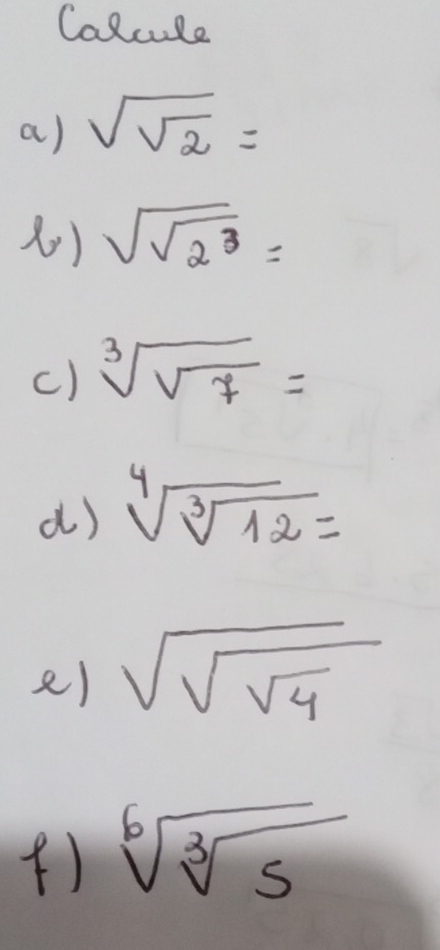 Calcule
a) √√2 =
b) √√2³ =
c) ³√√7 =
d) ⁴√³√12 =
e) √√√4
f) ⁶√³√5